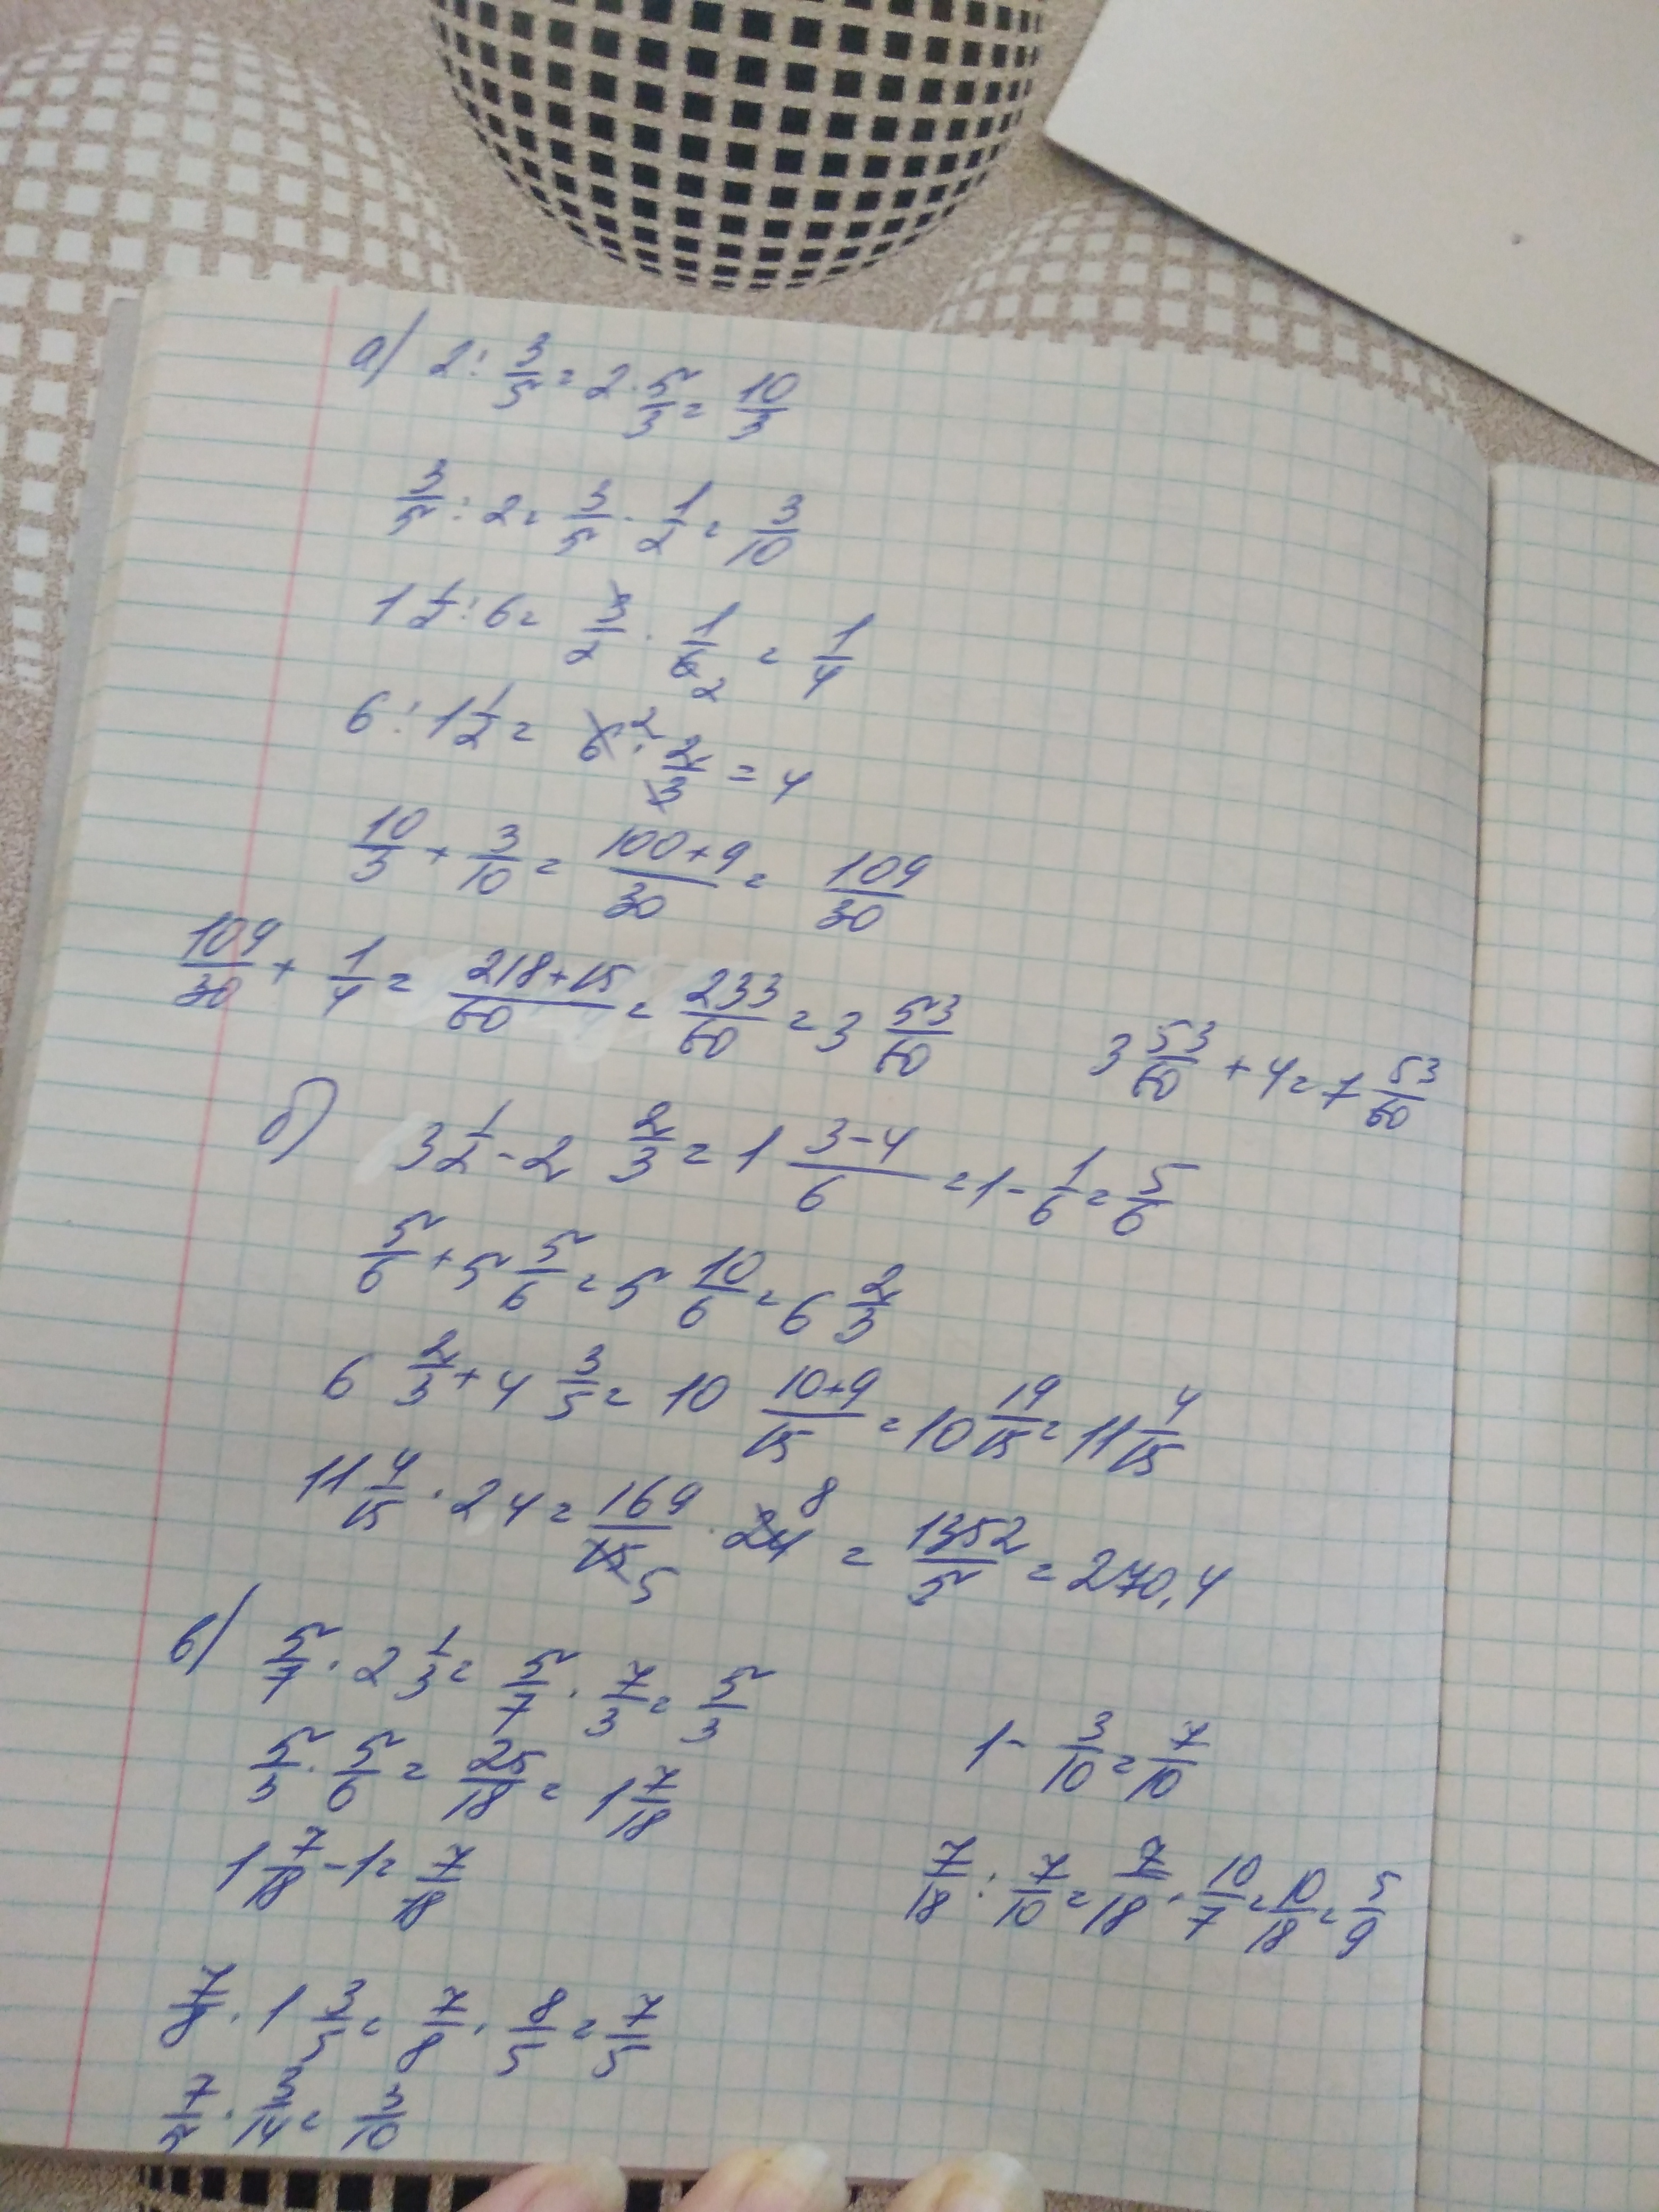 а) 2 : 3/5 = 2 · 5/3 = 10/3
3/5 : 2 = 3/5 · 1/2 = 3/10
1 1/2 : 6 = 3/2 · 1/6 2 = 1/4
6 : 1 1/2 = 6 2 · 2/3 = 4
10/3 + 3/10 = (100+9)/30 = 109/30
109/30 + 1/4 = (218+15)/60 = 233/60 = 3 53/60
3 53/60 + 4 = 7 53/60
б) 3 1/2 - 2 2/3 = 1 (3-4)/6 = 1 - 1/6 = 5/6
5/6 + 5 5/6 = 5 10/6 = 6 2/3
6 2/3 + 4 3/5 = 10 (10+9)/15 = 10 19/15 = 11 4/15
11 4/15 · 24 = 169/15 5 · 24 8 = 1352/5 = 270,4
в) 5/7 · 2 1/3 = 5/7 · 7/3 = 5/3
5/3 · 5/6 = 25/18 = 1 7/18
1 7/18 - 1 = 7/18
7/8 · 1 3/5 = 7/8 · 8/5 = 7/5
7/5 · 3/14 = 3/10
1 - 3/10 = 7/10
7/18 : 7/10 = 7/18 · 10/7 = 10/18 = 5/9